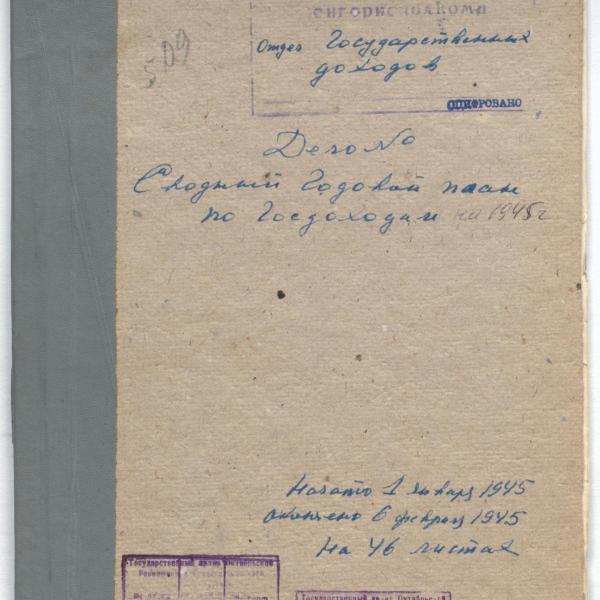 509
Отдел Государственных
доходов
ОЦИФРОВАНО
Дело No
Сводный Годовой план
по Госдоходам на 1945 г
Начато 1 января 1945
окончено 6 февраля 1945
На 46 листах
Государственный архив Октябрьской
Государственный архив Октябрьск